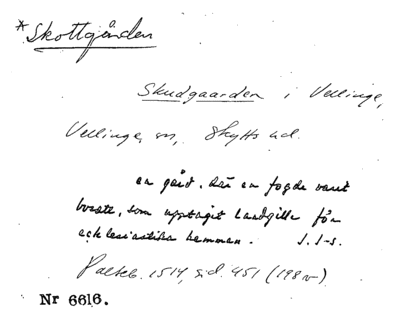 *Skottgården
Skudgaarden i Vellinge,
Vellinge sn, Skytts hd.
en gård, där en fogde varit
bosatt, som upptagit landgille från
ecklesiastika hemman. J. J-s.
Palteb. 1514, sid. 451 (198 v)
Nr 6616.